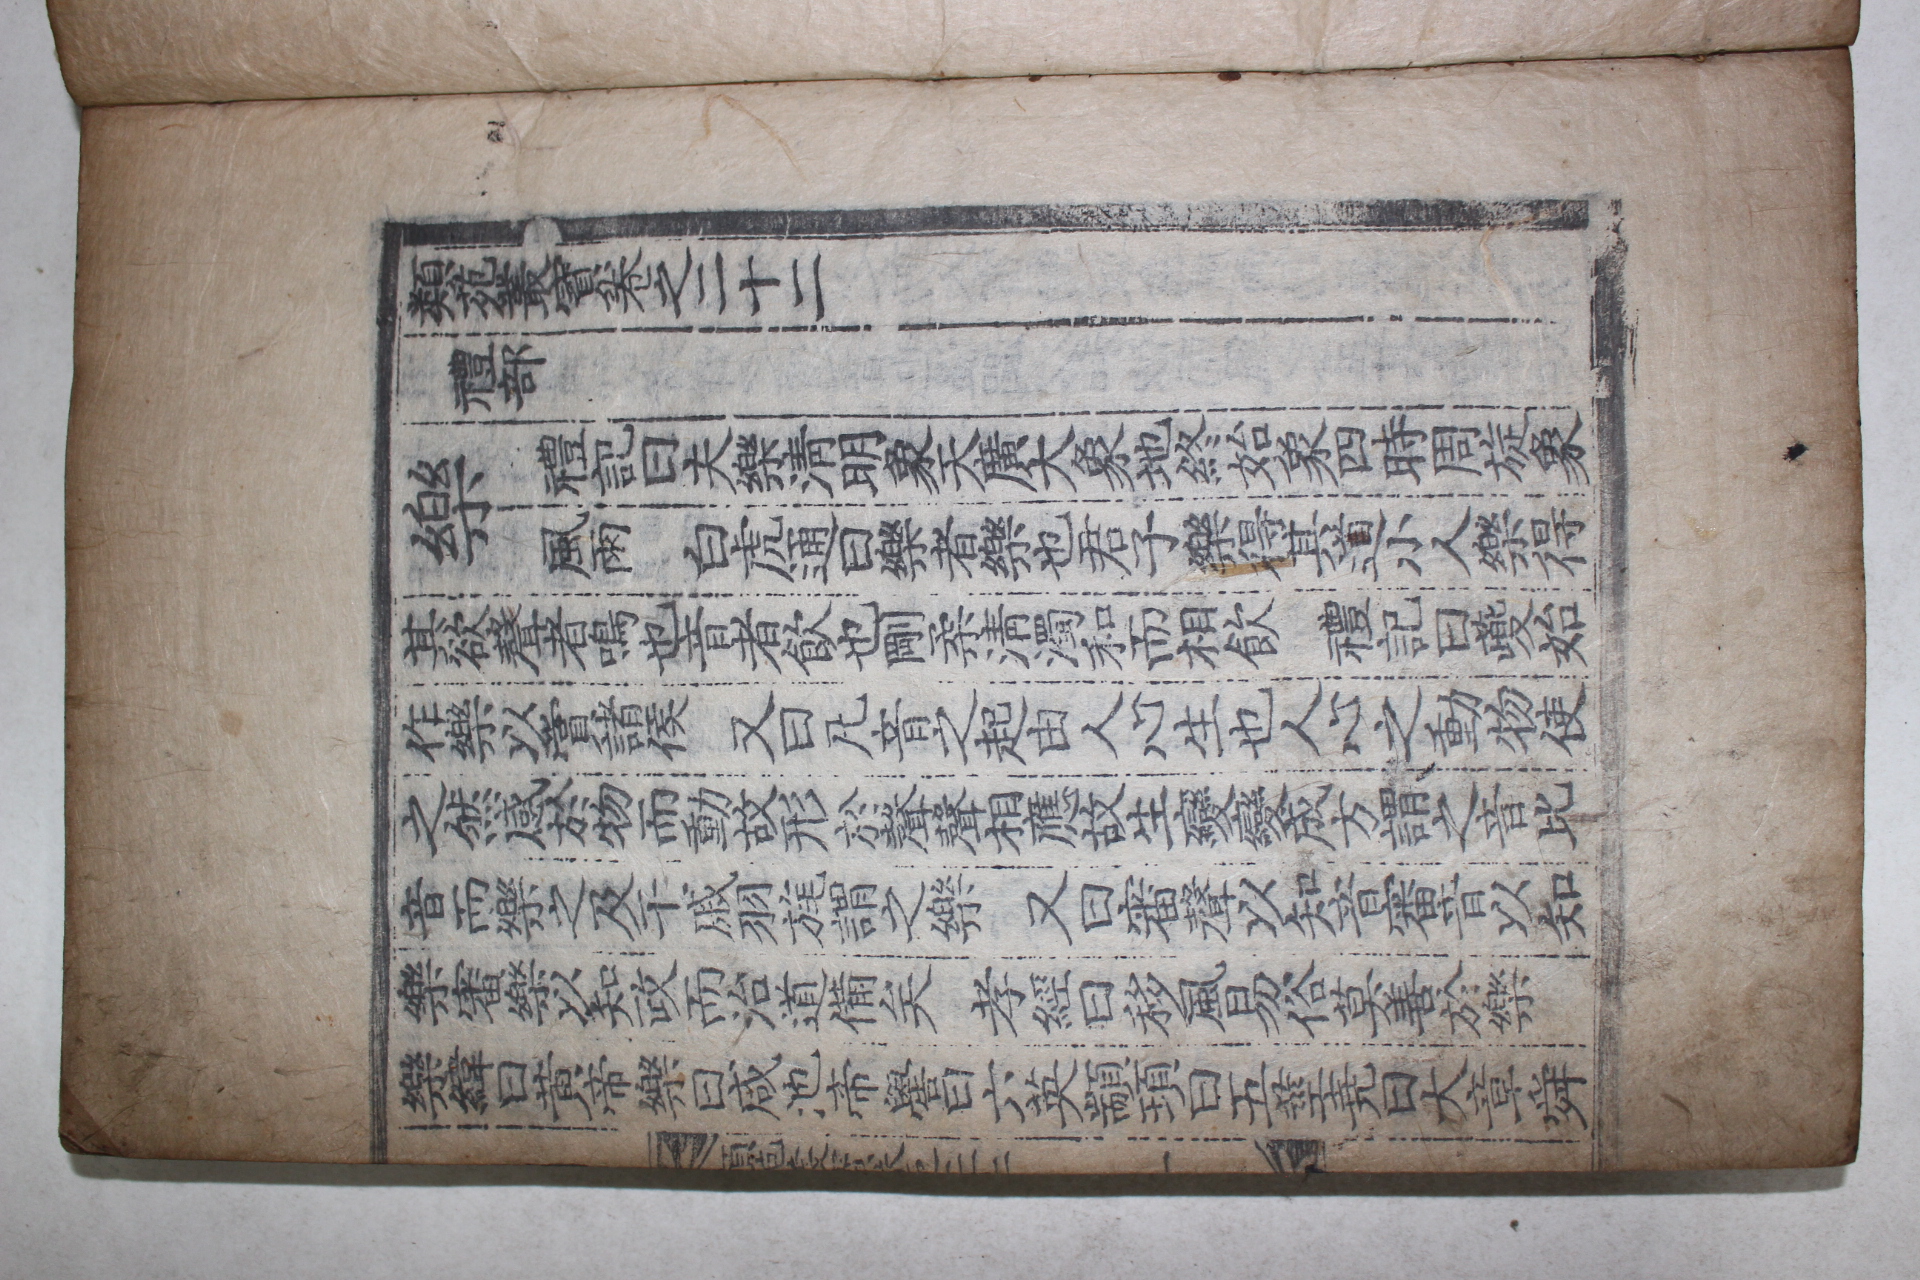 類苑叢寶卷之二十二
禮部
樂 禮記曰夫樂清明象天廣大象地終始象四時周旋象
風雨 白虎通曰樂者樂也君子樂得其道小人樂得
其欲聲者鳴也音者飮也剛柔清濁和而相飮 禮記曰夔始
作樂以賞諸侯 又曰凡音之起由人心生也人心之動物使
之然感於物而動故形於聲聲相應故生變變成方謂之音比
音而樂之及干戚羽旄謂之樂 又曰審聲以知音審音以知
樂審樂以知政而治道備矣 孝經曰移風易俗莫善於樂
樂緯曰黃帝樂曰咸池帝嚳曰六英顓頊曰五莖堯曰大章舜